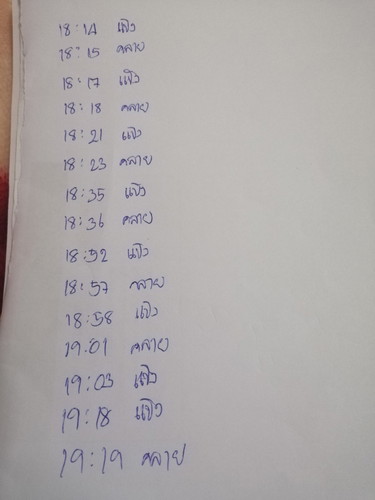 18:14 แข็ง
18:15 คลาย
18:17 แข็ง
18:18 คลาย
18:21 แข็ง
18:23 คลาย
18:35 แข็ง
18:36 คลาย
18:52 แข็ง
18:57 คลาย
18:58 แข็ง
19:01 คลาย
19:03 แข็ง
19:18 แข็ง
19:19 คลาย